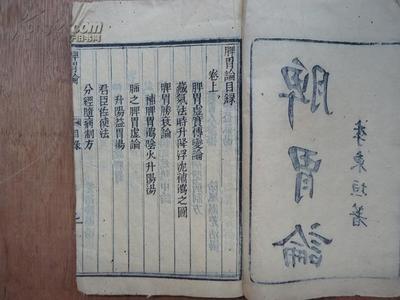 脾胃論
李東垣著
脾胃論目錄
卷上
脾胃虛實傳變論
藏氣法時升降浮沉補瀉之圖
脾胃勝衰論
補脾胃瀉陰火升陽湯
肺之脾胃虛論
升陽益胃湯
君臣佐使法
分經隨病制方
脾胃論
目錄